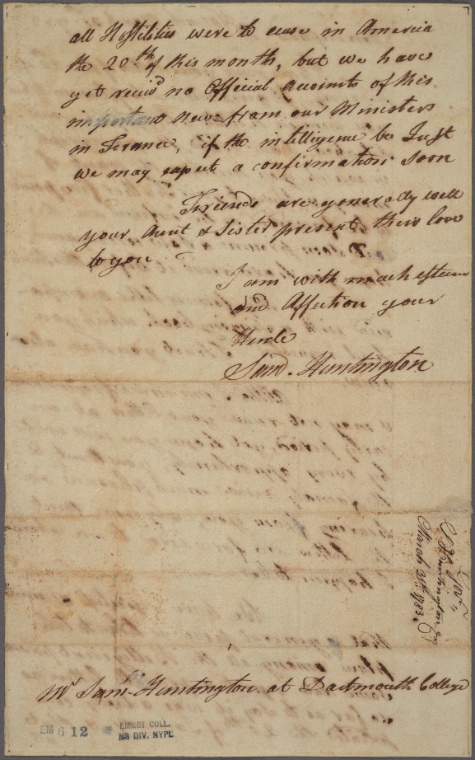 all Hostilities were to cease in America
the 20th of this month, but we have
yet recivd no Official accounts of this
important news from our Ministers
in France, if the intelligence be Just
we may expect a confirmation soon
Friends are generally well
your Aunt & Sister present their love
to you
I am with much esteem
and Affection your
Uncle
Sam. Huntington
March 31st 1783.
Mr Saml Huntington at Dartmouth College
EM 6 12
EMMET COLL.
MS DIV. NYPL